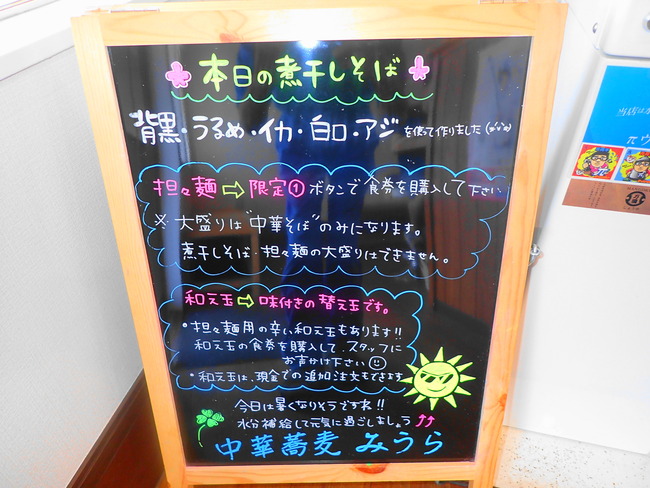 本日の煮干しそば
背黒・うるめ・イカ・白口・アジを使って作りました
担々麺⇨限定①ボタンで食券を購入して下さい
※大盛りは"中華そば"のみになります。
煮干しそば・担々麺の大盛りはできません。
和え玉⇨味付きの替え玉です。
・担々麺用の辛い和え玉もあります!!
和え玉の食券を購入して、スタッフに
お声かけ下さい
・和え玉は、現金での追加注文もできます
今日は暑くなりそうですね!!
水分補給して元気に過ごしましょう⇈
中華蕎麦 みうら
当店は